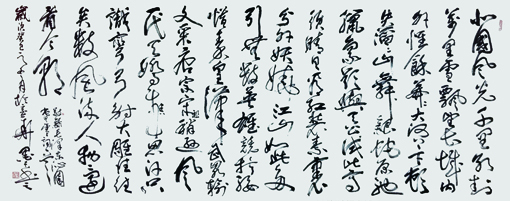 北國風光千里冰封
萬里雪飄望長城內
外惟餘莽莽大河上下頓
失滔滔山舞銀蛇原馳
蠟象欲與天公試比高
須晴日看紅裝素裹
分外妖嬈江山如此多
引無數英雄競折腰
惜秦皇漢武略輸
文采唐宗宋祖稍遜風
代天驕成吉思汗只
識彎弓射大雕俱往
矣數風流人物還
看今朝